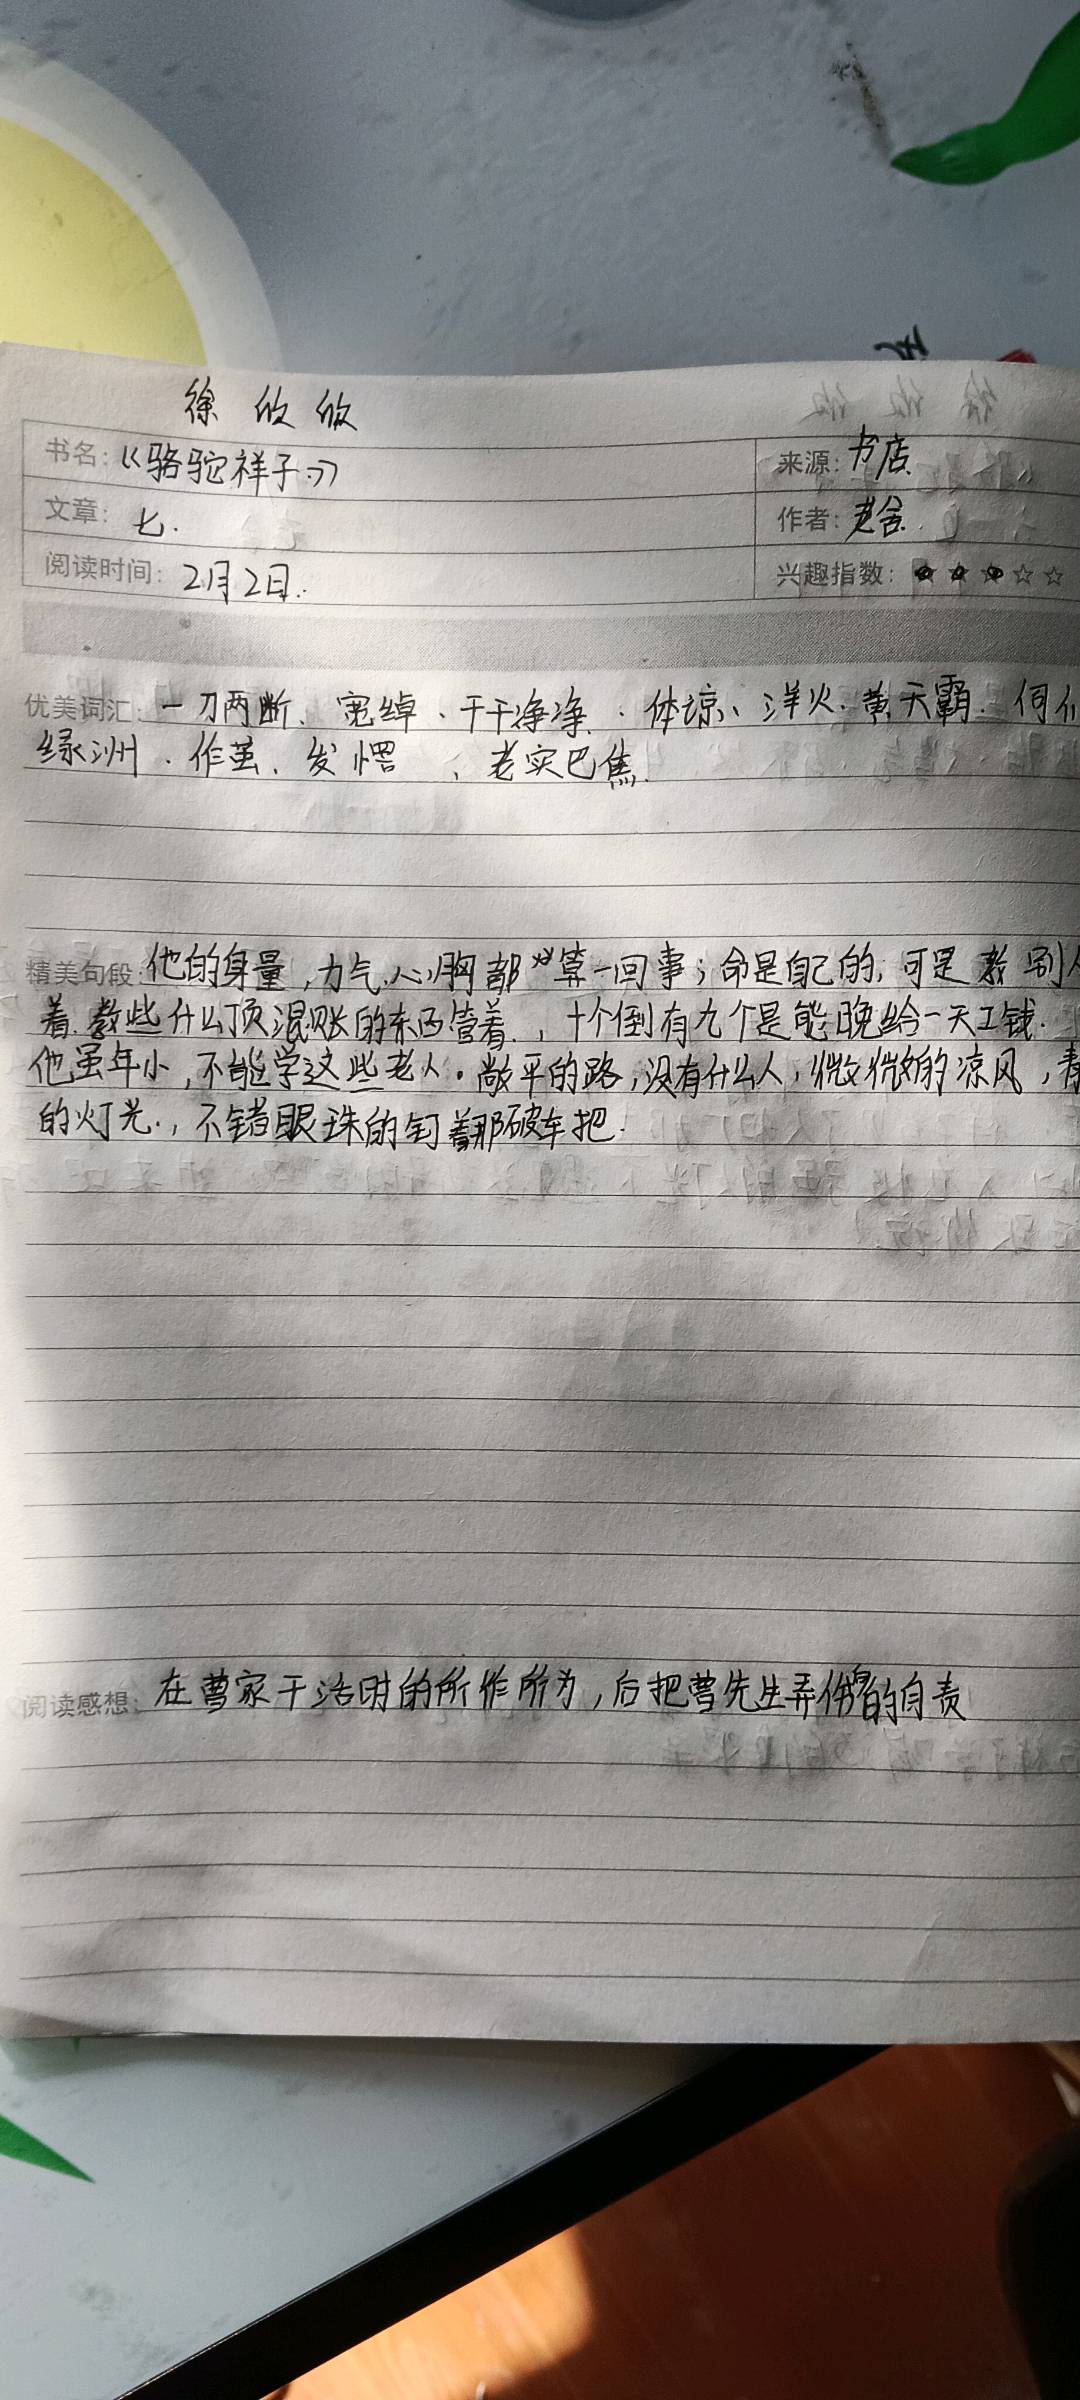 徐攸攸
书名：《骆驼祥子》 来源：书店
文章：七. 作者：老舍.
阅读时间：2月2日. 兴趣指数：★★★☆☆
优美词汇：一刀两断、宽绰、干干净净、体谅、洋火、黄天霸、何
绿洲、作茧、发愣、老实巴焦.
精美句段：他的身量，力气，心胸都算一回事；命是自己的，可是教别
着.教些什么顶混账的东西管着，十个倒有九个是能晚给一天工钱.
他虽年小，不能学这些老人。敞平的路，没有什么人，微微的凉风，
的灯光，不错眼珠的钉着那破车把.
阅读感想：在曹家干活时的所作所为，后把曹先生弄伤的自责